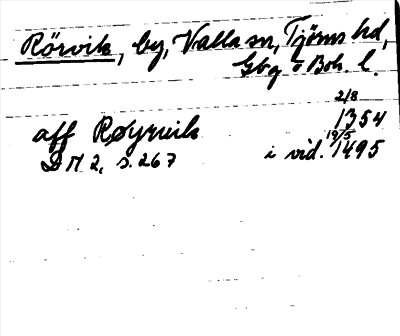 Rörvik, by, Valla sn, Tjörns hd,
Gbg o Boh. l.
2/8
aff Røyrwik 1354
19/5
DN 2, s. 267 i vid. 1495